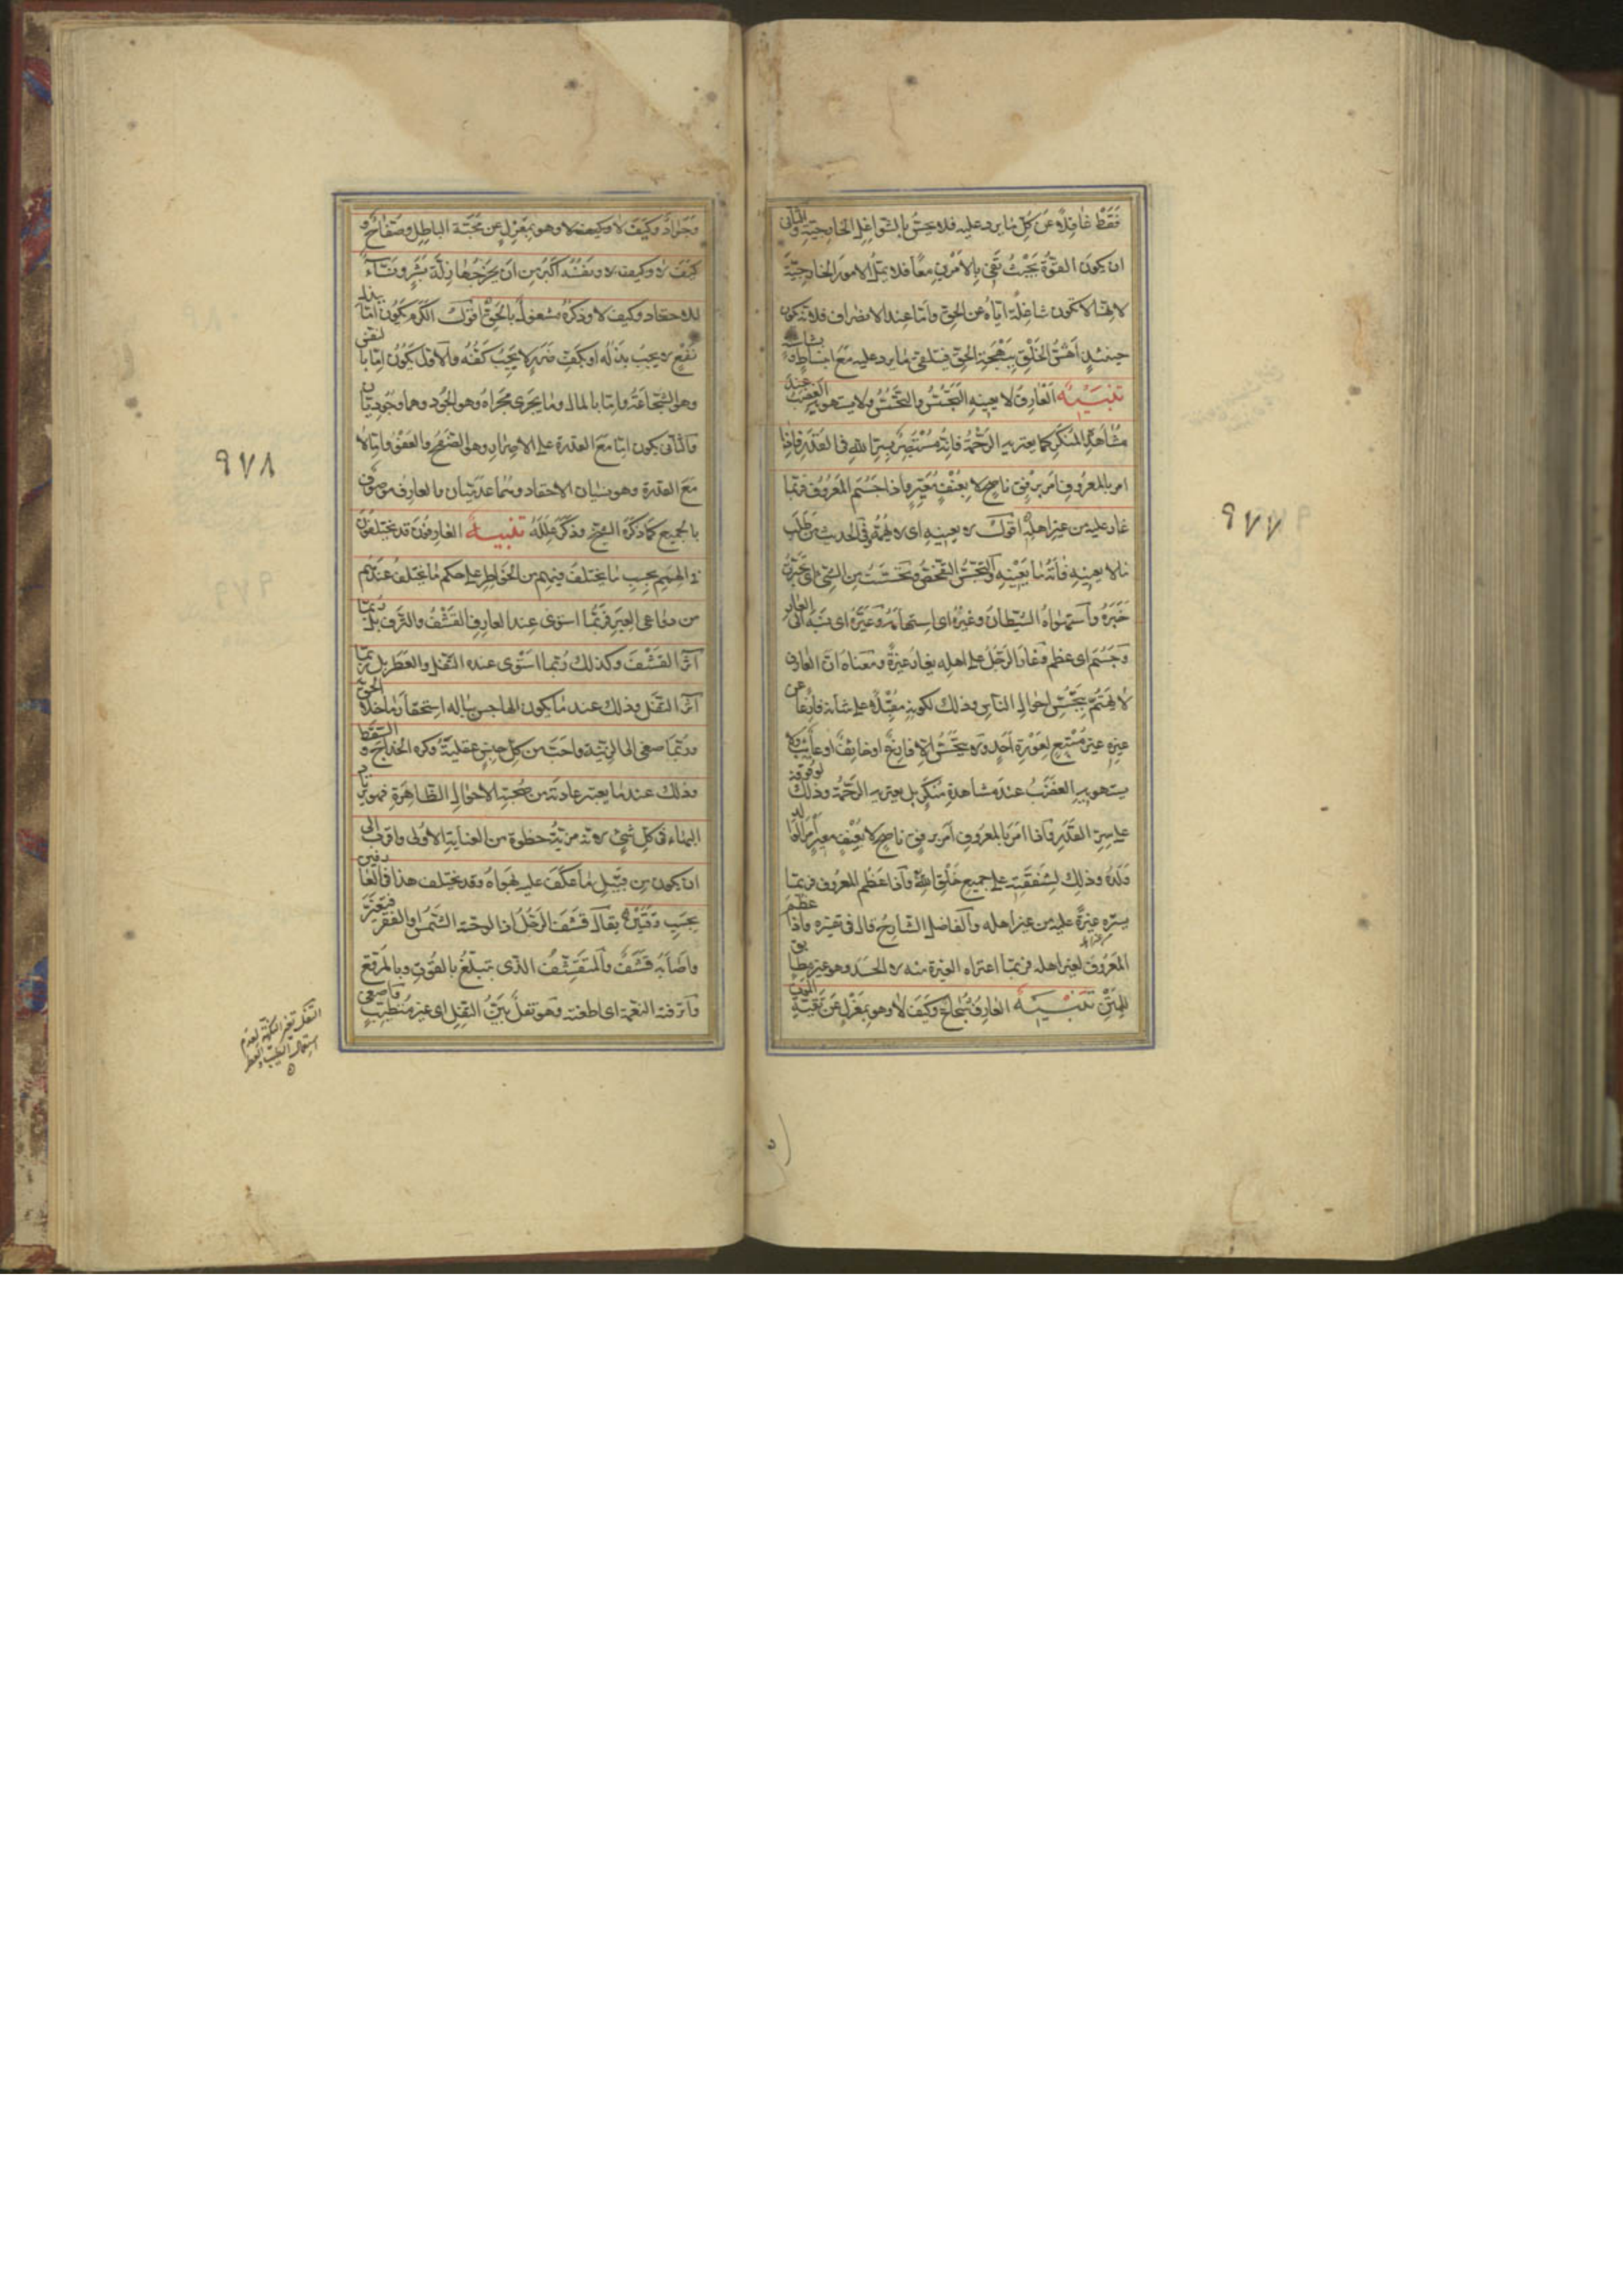 فَقَطْ غافلاً عن كلّ ما يرد عليه فلا يحسّ بالشواغل الخارجيّة والثانى
ان يكون القوّة بحيث تفى بالامرين معًا فلا يملّ الامور الخارجيّة
لانّها لا تكون شاغلة ايّاه عن الحق وامّا عند الانصراف فلا تكون
حينئذٍ اهشّ الخلق ببهجة الحق فيتلقى ما يرد عليه مع انبساط وبشاشة
تنبيه العارف لا يعينه التجسّس والتحسّس ولا يستهويه الغضب عند
مشاهدة المنكر كما يعتريه الرحمة فانّه مستبصر بسرّ الله فى القدر فاذا
امر بالمعروف امر برفق ناصح لا بعنف معيّر واذا جسم المعروف فربّما
غار عليه من غير اهله اقول لا يعينيه اى لا يهمّه وفى الحديث من طلب
ما لا يعينيه فاته ما يعينيه والتجسّس التفحّص وتحسّست من الشئ اى تخبّرت
خبره واستهواه الشيطان وغيره اى استهامه وعيّره اى نسبه الى العار
وجسم اى عظم وغار الرجل على اهله يغار غيرةً ومعناه انّ العارف
لا يهتمّ بتجسّس احوال الناس وذلك لكونه مقبلا على شانه فارغًا عن
غيره غير متّبع لعورة احد ولا يتجسّس الّا فارغ او خائف او غائب ولا
يستهويه الغضب عند مشاهدة منكر بل يعتريه الرحمة وذلك لوقوفه
على سرّ القدر واذا امر بالمعروف امر برفق ناصح لا بعنف معيّر امر الوالد
ولده وذلك لشفقته على جميع خلق الله واذا عظم المعروف فربّما
يستره غيرةً عليه من غير اهله والفاضل الشارح قال فى تفسيره واذا عظم
المعروف لغير اهله فربّما اعتراه الغيرة منه لا الحسد وهو غير مطابق
للمتن تنبيه العارف شجاع وكيف لا وهو بمعزل عن تقيّة الموت
وجواد وكيف لا وكيف لا وهو بمعزل عن محبّة الباطل وصفّاح و
كيف لا وكيف لا ونفسه اكبر من ان يحرجها زلّة بشر ونسّاء
للاحقاد وكيف لا وذكره مشغول بالحق اقول الكرم يكون امّا ببذل
نفع لا يجب بذله او بكفّ ضرر لا يجب كفّه والاوّل يكون امّا بالنفس
وهو الشجاعة وامّا بالمال وما يجرى مجراه وهو الجود وهما وجوديّان
والثانى يكون امّا مع القدرة على الاضرار وهو الصفح والعفو وامّا لا
مع القدرة وهو نسيان الاحقاد وهما عدميّان والعارف موصوف
بالجميع كما ذكره الشيخ وذكر علله تنبيه العارفون قد يختلفون
فى الهمم بحسب ما يختلف فيهم من الخواطر على حكم ما يختلف عندهم
من دواعى العبر فربّما استوى عند العارف القشف والترف بل ربّما
آثر القشف وكذلك ربّما استوى عنده التفل والعطر بل ربّما
آثر التفل وذلك عند ما يكون الهاجس بباله استحقار ما خلا الحقّ
وربّما صغى الى الزينة واحبّ من كلّ جنس عقيلته وكره الخداج و السقط
وذلك عند ما يعتبر عادته من صحبته الاحوال الظاهرة فهو يرتاد
البهاء فى كلّ شئ لانّه مزيّة حظوة من العناية الاولى واقرب الى
ان يكون من قبيل ما عكف عليه بهواه وقد يختلف هذا فى العارفين
بحسب وقتين يقال قشف الرجل اذا لوحته الشمس او الفقر فتغيّر
واصابه قشف والمتقشّف الذى يتبلّغ بالقوت وبالمرقّع
واترفته النعمة اى اطغته وهو تفل بيّن التفل اى غير متطيّب واصغى
التفل تغيّر النكهة لعدم
استعمال الطيب والعطر
٩٧٨
٩٧٧